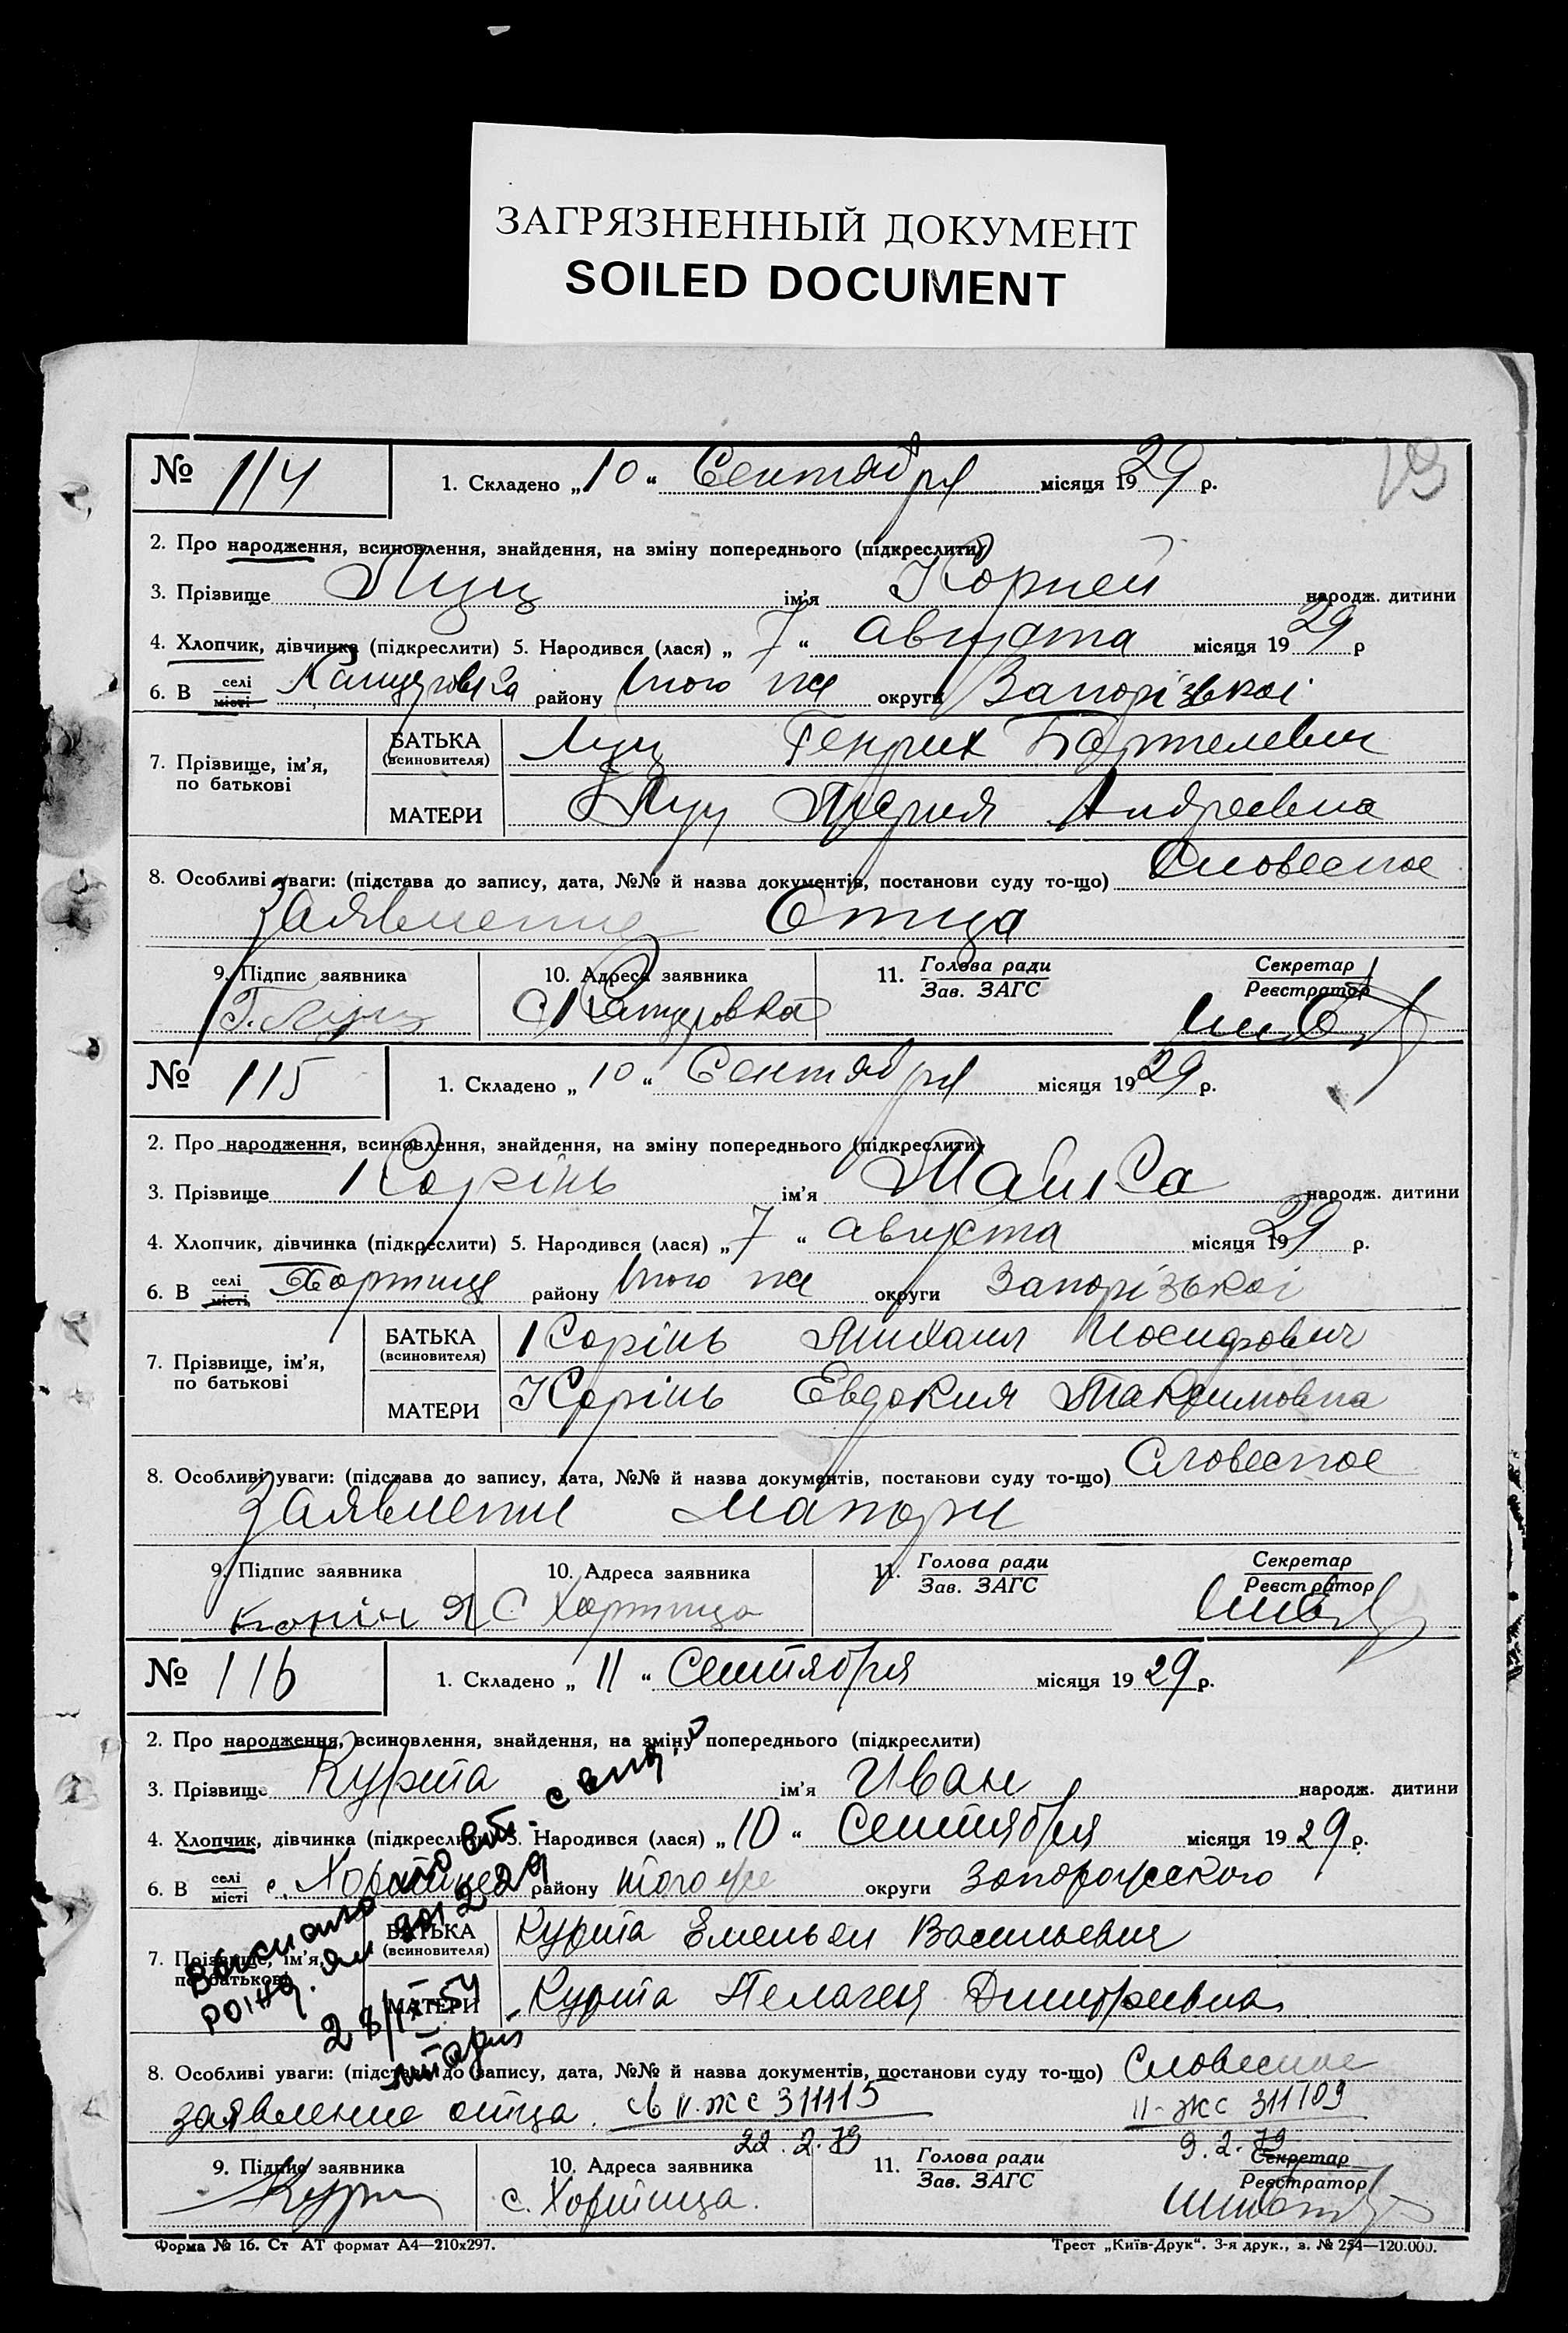 ЗАГРЯЗНЕННЫЙ ДОКУМЕНТ
SOILED DOCUMENT
№ 114
1. Складено „10“ Сентября місяця 1929 р.
2. Про народження, всиновлення, знайдення, на зміну попереднього (підкреслити)
3. Прізвище Луц ім'я Корней народж. дитини
4. Хлопчик, дівчинка (підкреслити) 5. Народився (лася) „7“ августа місяця 1929 р
6. В селі місті Канцеровка району того же округи Запорізької
7. Прізвище, ім'я, по батькові
БАТЬКА (всиновителя) Луц Генрих
МАТЕРИ Луц Мария Андреевна
8. Особливі уваги: (підстава до запису, дата, №№ й назва документів, постанови суду то-що) Словесное
заявление Отца
9. Підпис заявника 10. Адреса заявника 11. Голова ради Зав. ЗАГС Секретар Реєстратор
Г. Луц С Канцеровка
№ 115
1. Складено „10“ Сентября місяця 1929 р.
2. Про народження, всиновлення, знайдення, на зміну попереднього (підкреслити)
3. Прізвище Корінь ім'я народж. дитини
4. Хлопчик, дівчинка (підкреслити) 5. Народився (лася) „7“ августа місяця 1929 р.
6. В селі місті Хортиця району того же округи Запорізької
7. Прізвище, ім'я, по батькові
БАТЬКА (всиновителя) Корінь Михаил Иосифович
МАТЕРИ Корінь Евдокия Максимовна
8. Особливі уваги: (підстава до запису, дата, №№ й назва документів, постанови суду то-що) Словесное
заявление матери
9. Підпис заявника 10. Адреса заявника 11. Голова ради Зав. ЗАГС Секретар Реєстратор
С Хортица
№ 116
1. Складено „11“ Сентября місяця 1929 р.
2. Про народження, всиновлення, знайдення, на зміну попереднього (підкреслити)
3. Прізвище Курта ім'я Иван народж. дитини
4. Хлопчик, дівчинка (підкреслити) 5. Народився (лася) „10“ Сентября місяця 1929 р.
6. В селі місті с. Хортице району того же округи Запорожского
7. Прізвище, ім'я, по батькові
БАТЬКА (всиновителя) Курта Емельян Васильевич
МАТЕРИ Курта Пелагея Дмитриевна
8. Особливі уваги: (підстава до запису, дата, №№ й назва документів, постанови суду то-що) Словесное
заявление отца. II-жс 311115 II-жс 311109
22.2.79 9.2.79
9. Підпис заявника 10. Адреса заявника 11. Голова ради Зав. ЗАГС Секретар Реєстратор
с. Хортица.
Форма № 16. Ст АТ формат А4—210х297. Трест „Київ-Друк“. 3-я друк., з. № 254—120.000.